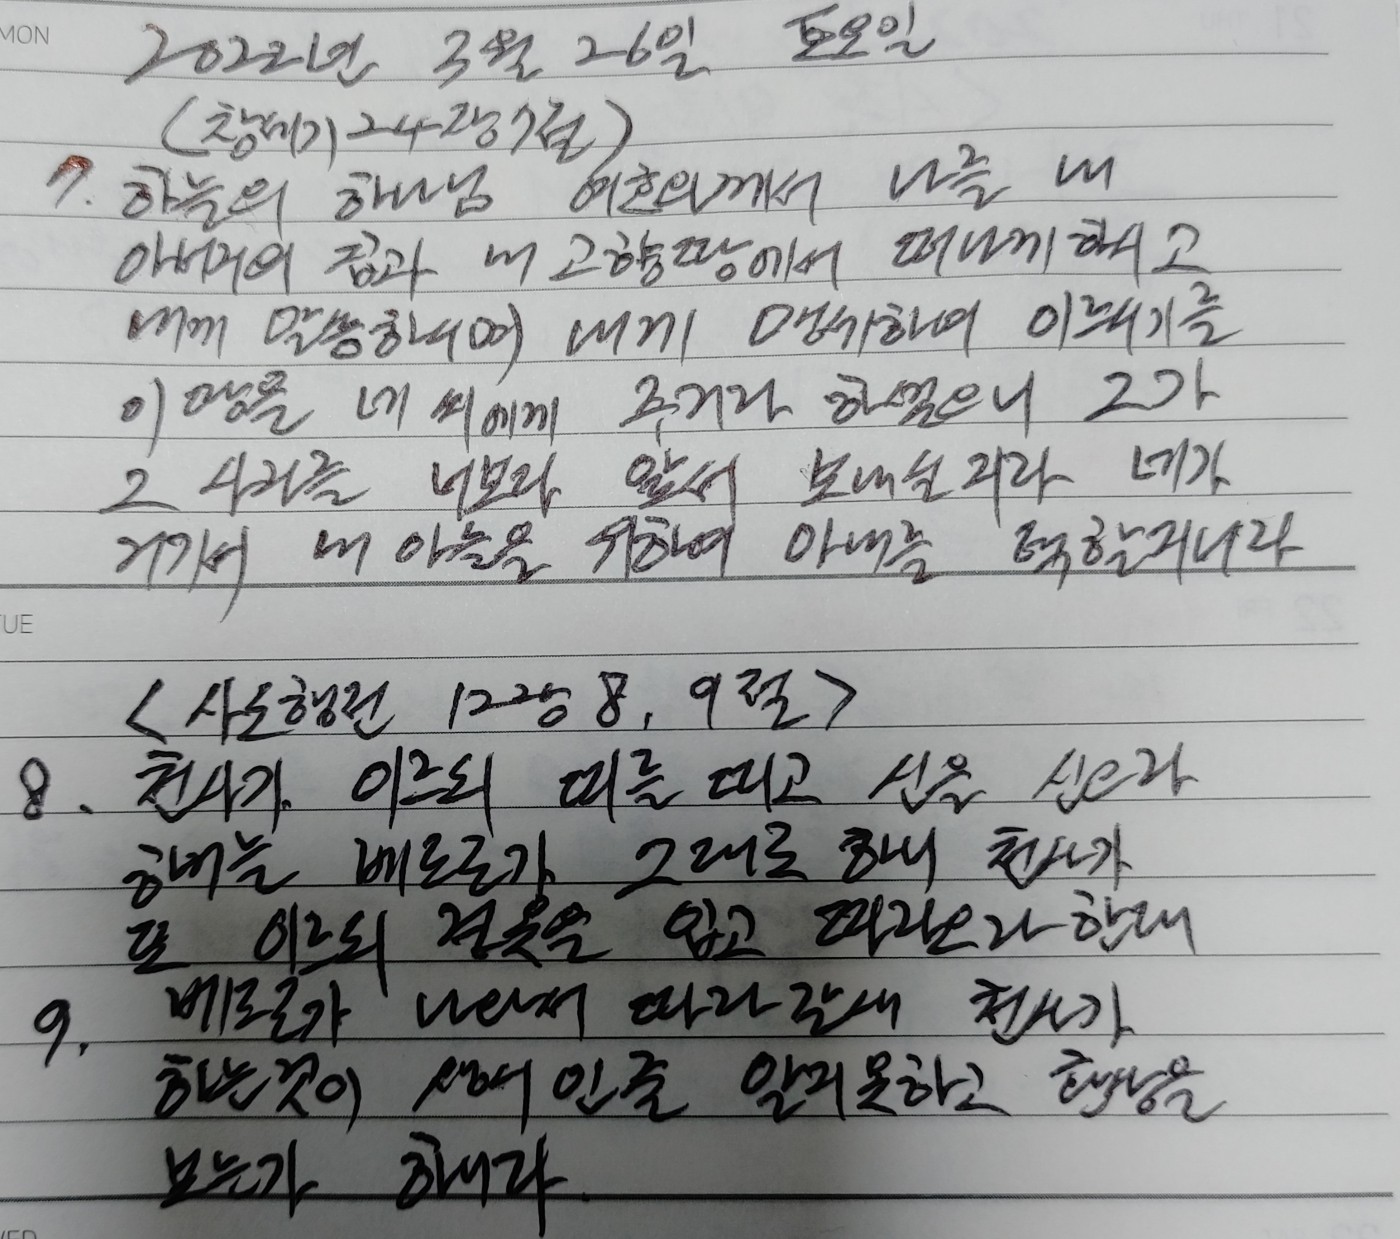 MON
2022년 3월 26일 토요일
(창세기 24장 7절)
7. 하늘의 하나님 여호와께서 나를 내
아버지의 집과 내 고향땅에서 떠나게 하시고
내게 말씀하시며 내게 맹세하여 이르시기를
이 땅을 네 씨에게 주리라 하셨으니 그가
그 사자를 너보다 앞서 보내실지라 네가
거기서 내 아들을 위하여 아내를 택할지니라
TUE
<사도행전 12장 8, 9절>
8. 천사가 이르되 띠를 띠고 신을 신으라
하거늘 베드로가 그대로 하니 천사가
또 이르되 겉옷을 입고 따라오라 한대
9. 베드로가 나와서 따라갈새 천사가
하는것이 생시인줄 알지못하고 환상을
보는가 하니라.
WED